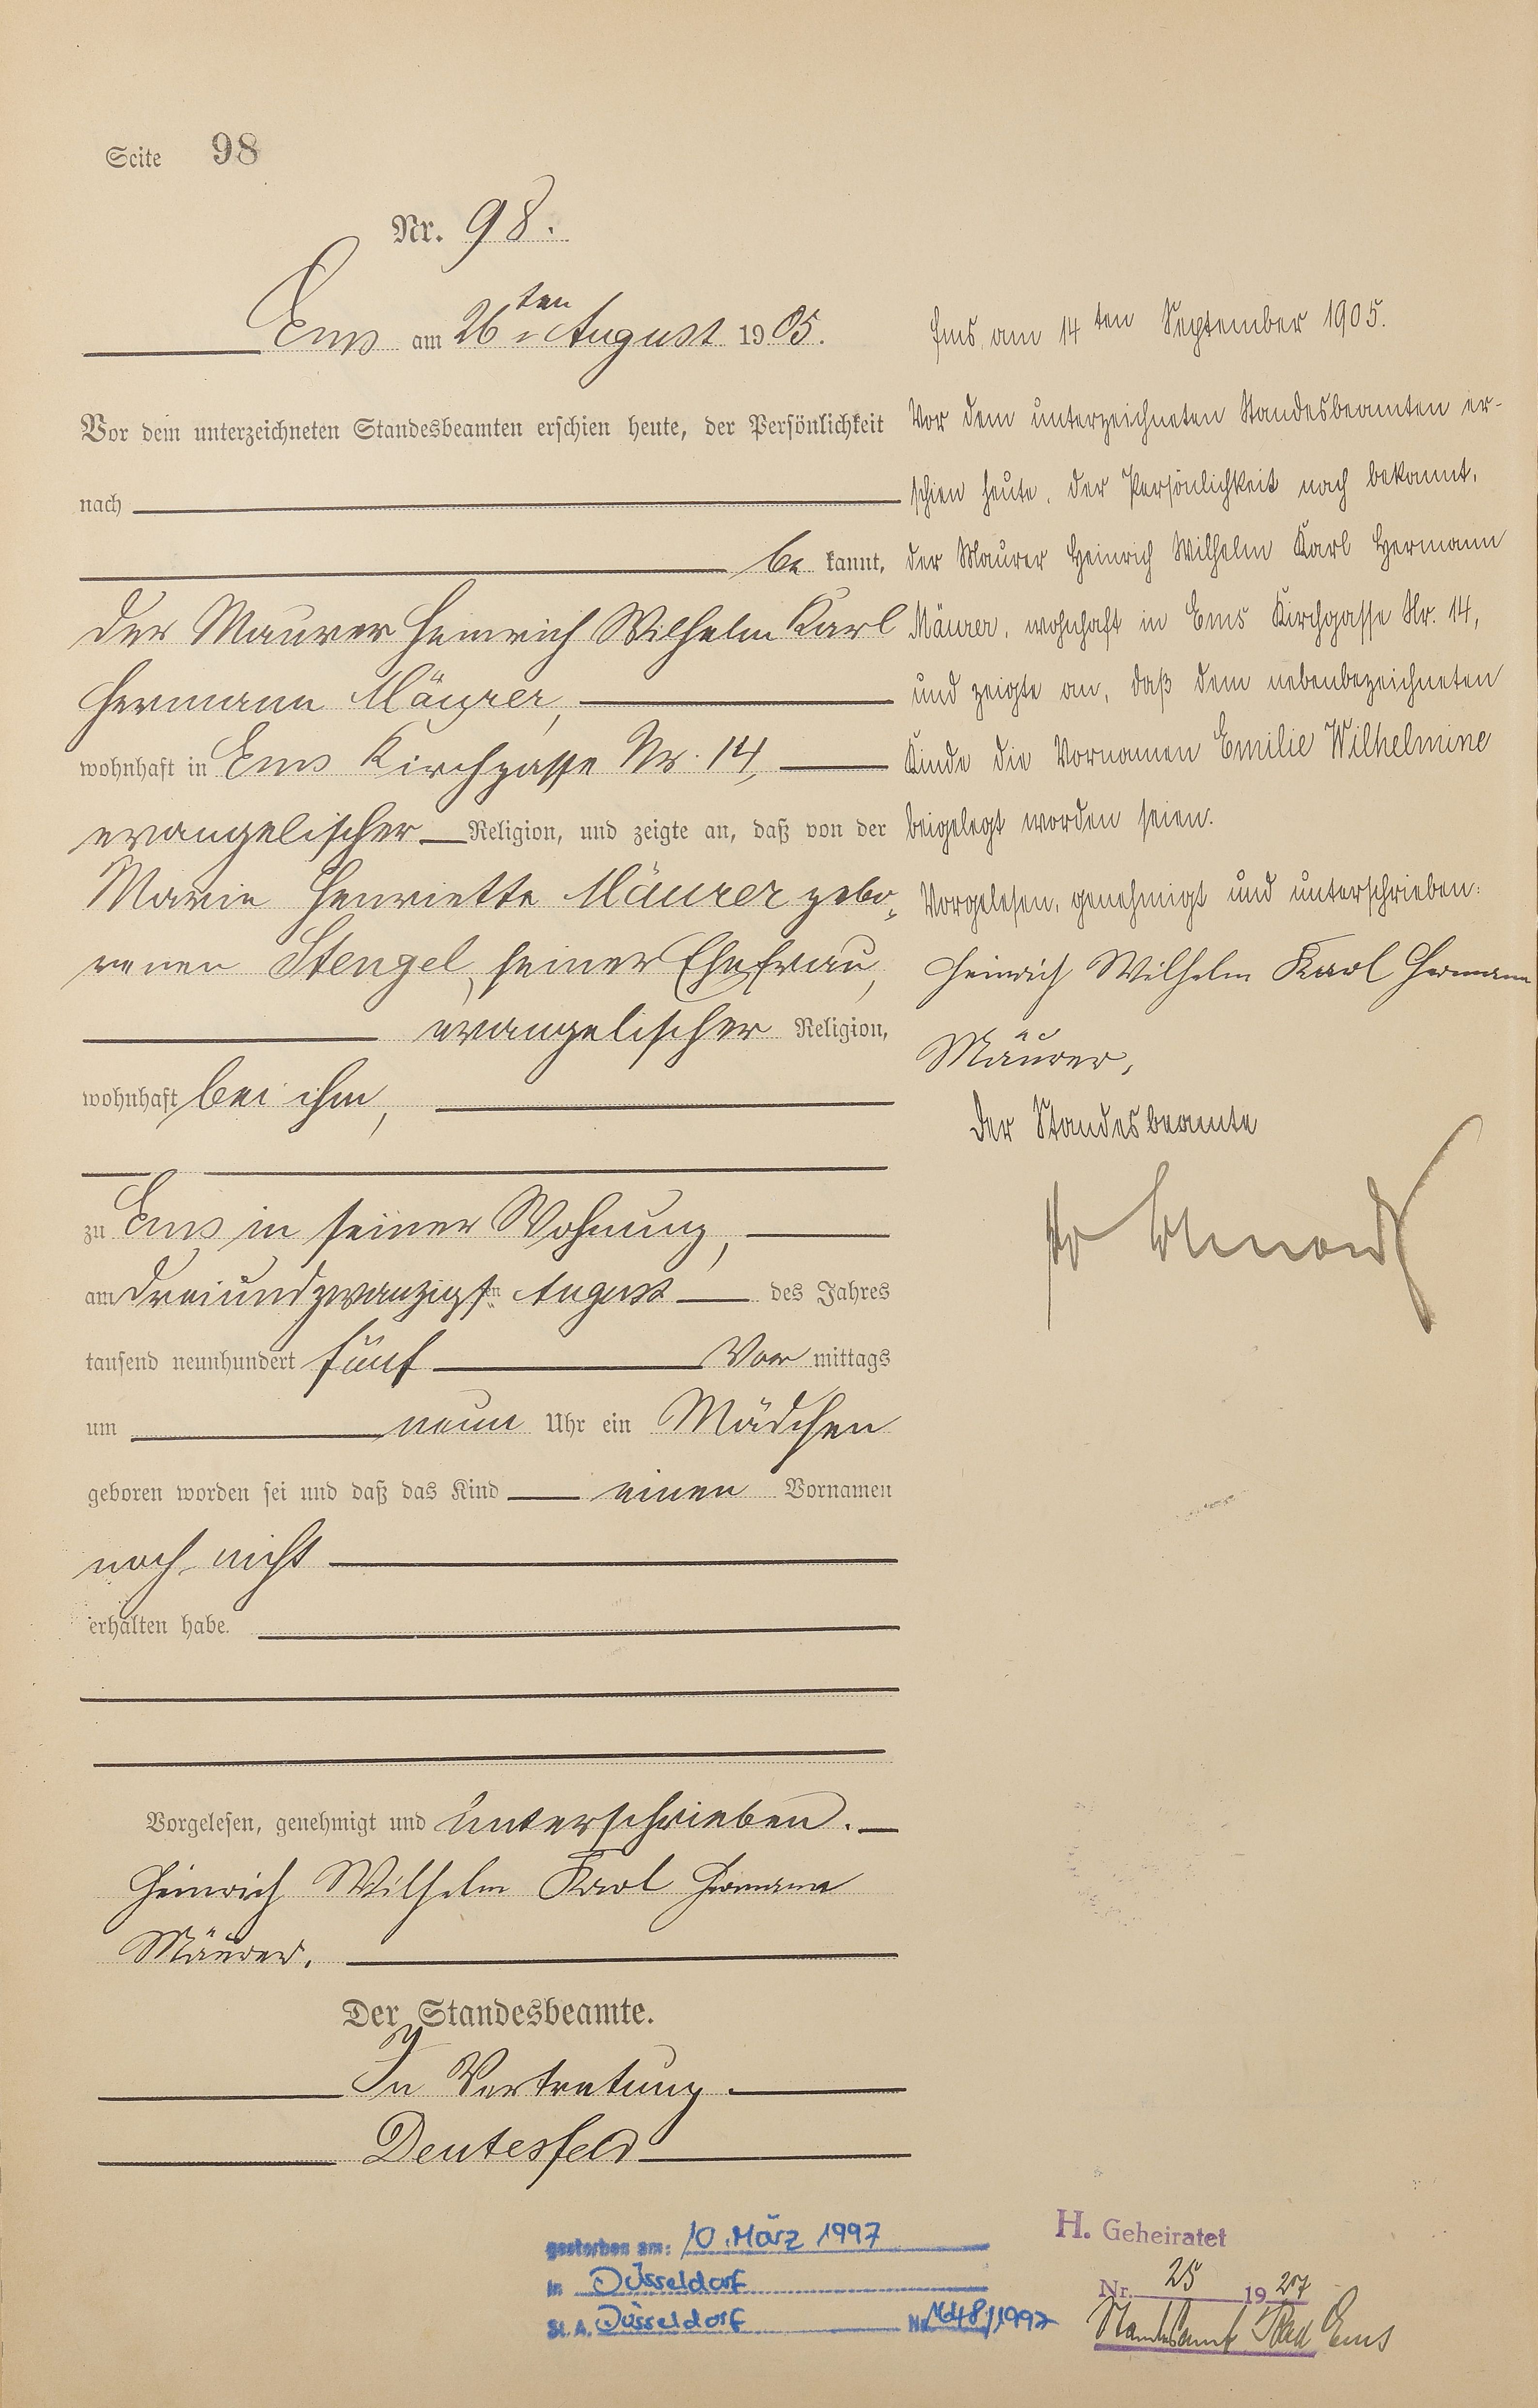 Seite 98
Nr. 98.
Ems am 26ten August 1905.
Vor dem unterzeichneten Standesbeamten erschien heute, der Persönlichkeit
nach
be kannt,
der Maurer Heinrich Wilhelm Karl
Hermann Mäurer,
wohnhaft in Ems Kirchgasse Nr. 14,
evangelischer Religion, und zeigte an, daß von der
Marie Henriette Mäurer gebo-
renen Stengel, seiner Ehefrau,
evangelischer Religion,
wohnhaft bei ihm,
zu Ems in seiner Wohnung,
am dreiundzwanzigsten August des Jahres
tausend neunhundert fünf Vor mittags
um neun Uhr ein Mädchen
geboren worden sei und daß das Kind einen Vornamen
noch nicht
erhalten habe.
Vorgelesen, genehmigt und unterschrieben.
Heinrich Wilhelm Karl Hermann
Mäurer.
Der Standesbeamte.
In Vertretung
Deutesfeld
Ems, am 14ten September 1905.
Vor dem unterzeichneten Standesbeamten er-
schien heute, der Persönlichkeit nach bekannt,
der Maurer Heinrich Wilhelm Karl Hermann
Mäurer, wohnhaft in Ems Kirchgasse Nr. 14,
und zeigte an, daß dem nebenbezeichneten
Kinde die Vornamen Emilie Wilhelmine
beigelegt worden seien.
Vorgelesen, genehmigt und unterschrieben:
Heinrich Wilhelm Karl Hermann
Mäurer,
Der Standesbeamte
gestorben am: 10. März 1997
in Düsseldorf
St.A. Düsseldorf Nr. 1648/1997
H. Geheiratet
Nr. 25 1927
Standesamt Bad Ems